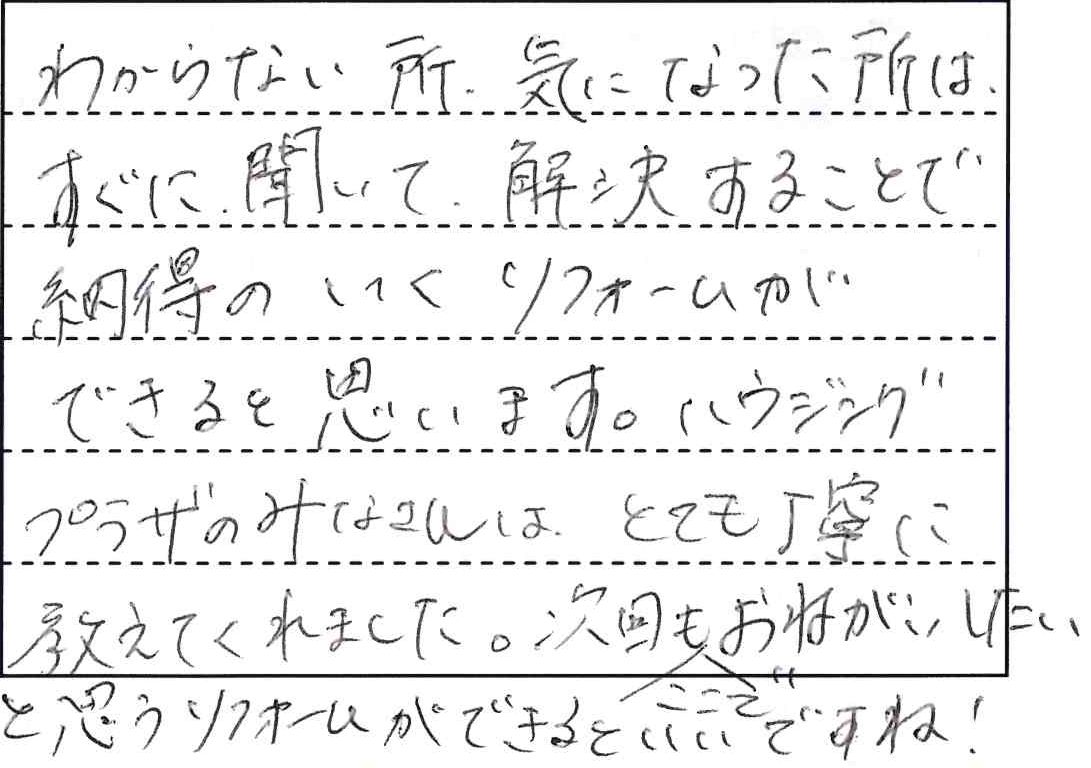 わからない所、気になった所は、
すぐに、聞いて、解決することで
納得のいくリフォームが
できると思います。ハウジング
プラザのみなさんは、とても丁寧に
教えてくれました。次回もおねがいしたい
ここで
と思うリフォームができるといいですね!